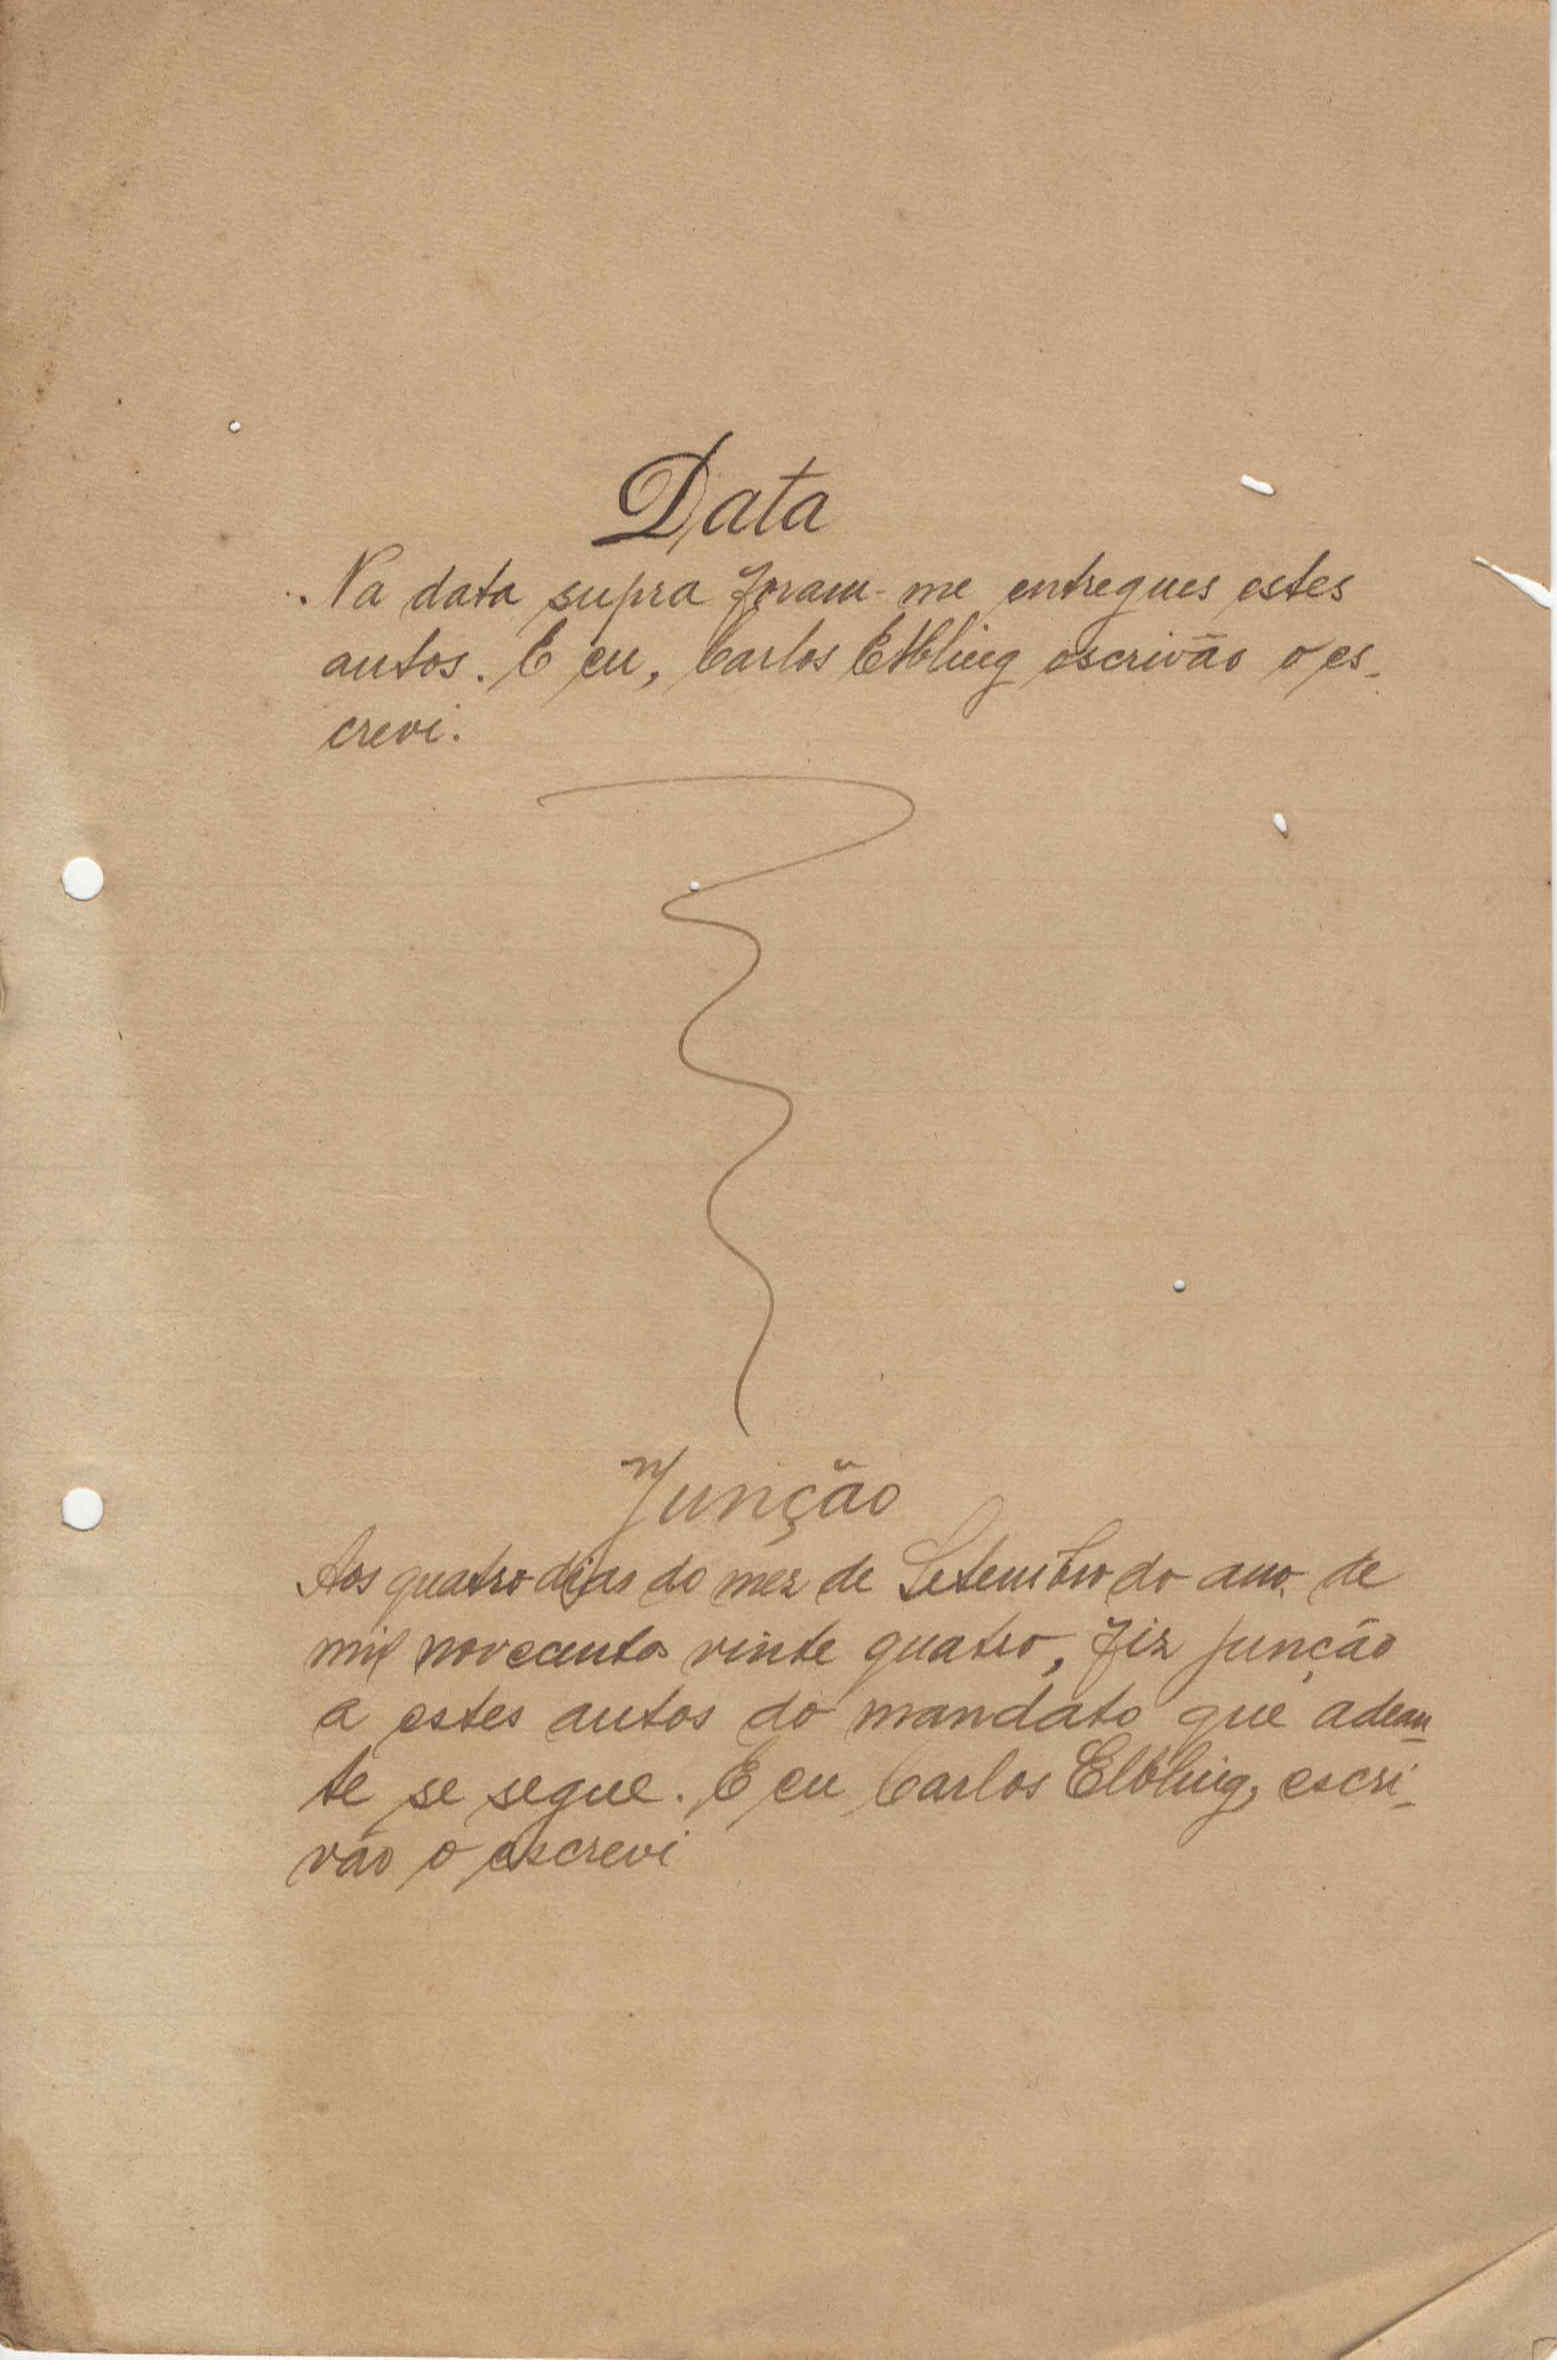 Data
Na data supra foram-me entregues estes
autos. E eu, Carlos Elbling escrivão o es-
crevi.
Junção
Aos quatro dias do mez de Setembro do anno de
mil novecentos vinte quatro, fiz junção
a estes autos do mandato que adean-
te se segue. E eu Carlos Elbling, escri-
vão o escrevi